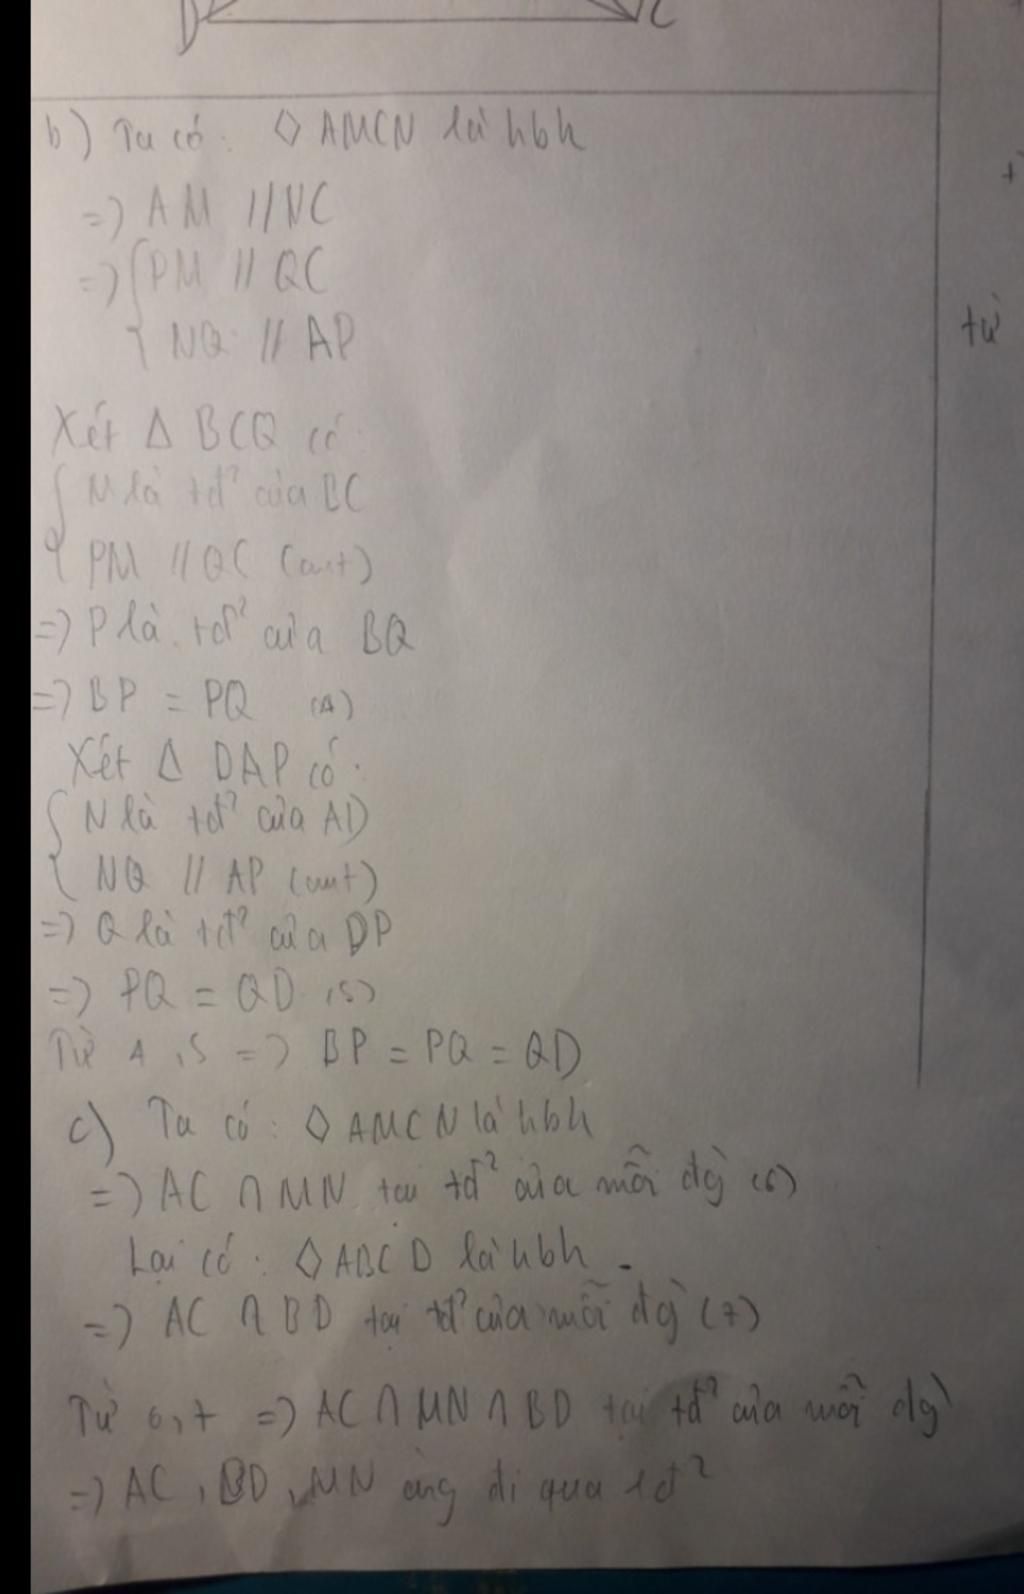 D C
b) Ta có: ◇ AMCN là hbh
=> AM // NC
=> { PM // QC
{ NQ // AP
từ
Xét Δ BCQ có:
{ M là tđ² của BC
{ PM // QC (cmt)
=> P là tđ² của BQ
=> BP = PQ (4)
Xét Δ DAP có:
{ N là tđ² của AD
{ NQ // AP (cmt)
=> Q là tđ² của DP
=> PQ = QD (5)
Từ 4, 5 => BP = PQ = QD
c) Ta có: ◇ AMCN là hbh
=> AC ∩ MN tại tđ² của mỗi đg (6)
Lại có: ◇ ABCD là hbh.
=> AC ∩ BD tại tđ² của mỗi đg (7)
Từ 6, 7 => AC ∩ MN ∩ BD tại tđ² của mỗi đg
=> AC, BD, MN cùng đi qua 1 đ²